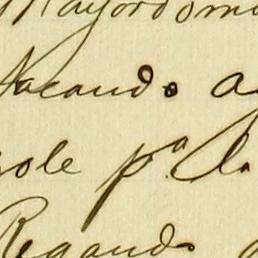 Mayordomo
Vacando a
ole pª la
Regando